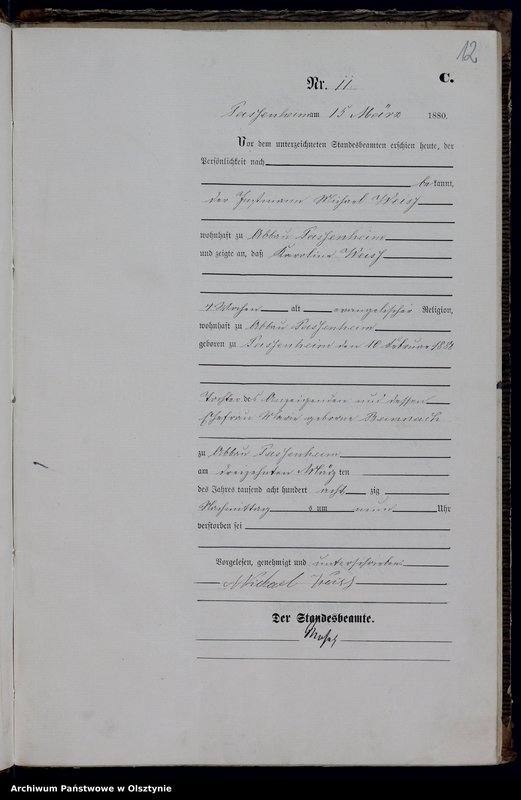 12
Nr. 11 C.
Passenheim am 15 März 1880.
Vor dem unterzeichneten Standesbeamten erschien heute, der
Persönlichkeit nach
be kannt,
der Michael Weiss
wohnhaft zu Abbau Passenheim
und zeigte an, daß Karoline Weiss
4 Wochen alt evangelischer Religion,
wohnhaft zu Abbau Passenheim
geboren zu Passenheim den 10 Februar 1880
Tochter des Anzeigenden und dessen
Ehefrau geborne
zu Abbau Passenheim
am dreizehnten März ten
des Jahres tausend acht hundert acht zig
Nachmittag s um neun Uhr
verstorben sei
Vorgelesen, genehmigt und unterschrieben
Michael Weiss
Der Standesbeamte.
Archiwum Państwowe w Olsztynie